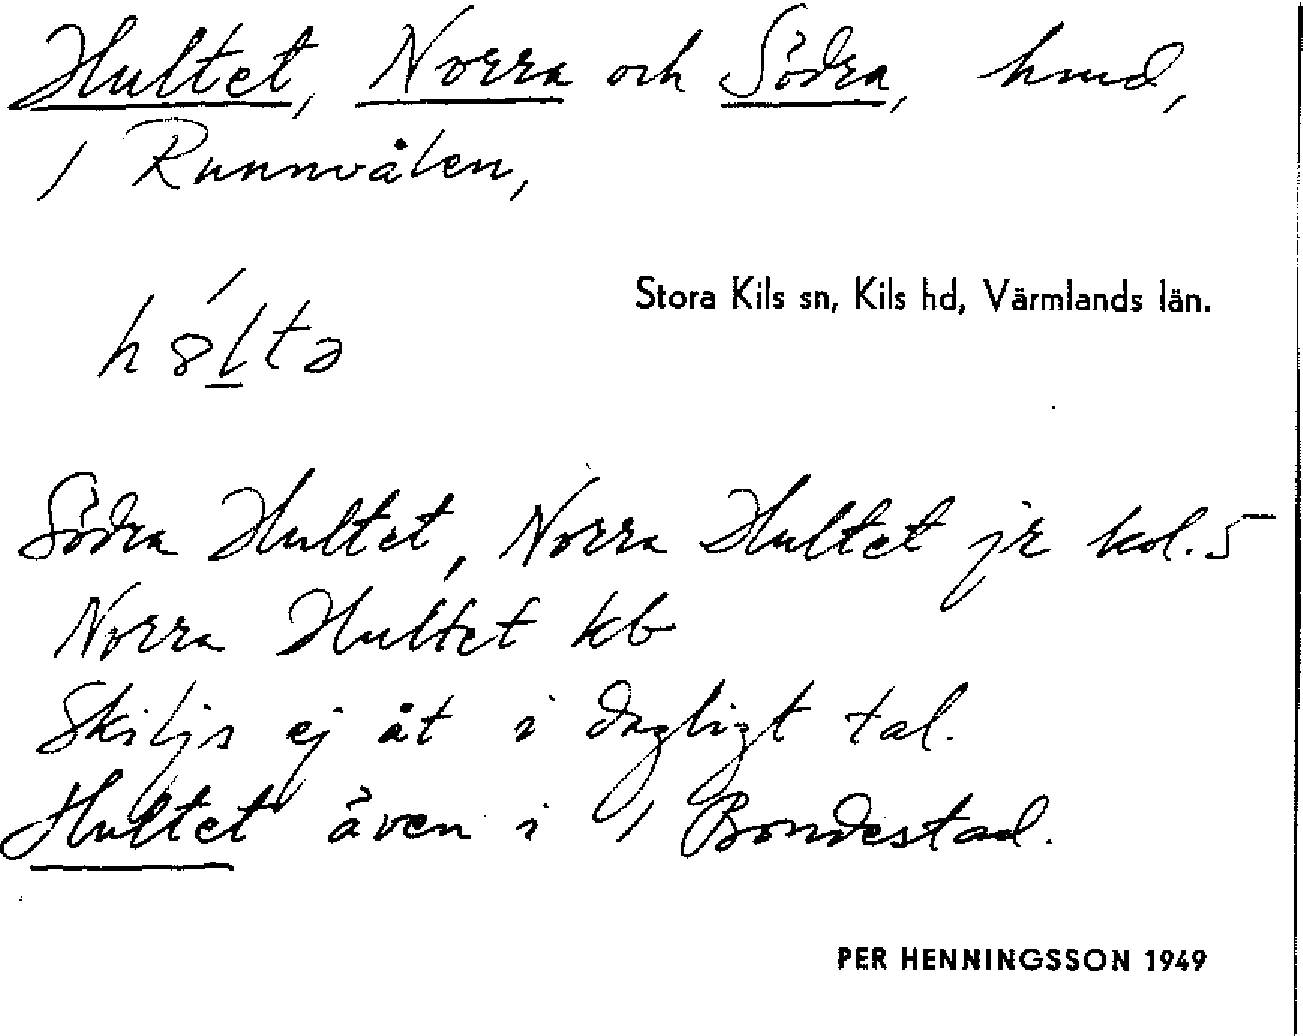 Hultet, Norra och Södra, hmd,
/ Runnvålen,
Stora Kils sn, Kils hd, Värmlands län.
Södra Hultet, Norra Hultet jr kol. 5
Norra Hultet kb
Skiljs ej åt i dagligt tal.
Hultet även i / Bondestad.
PER HENNINGSSON 1949